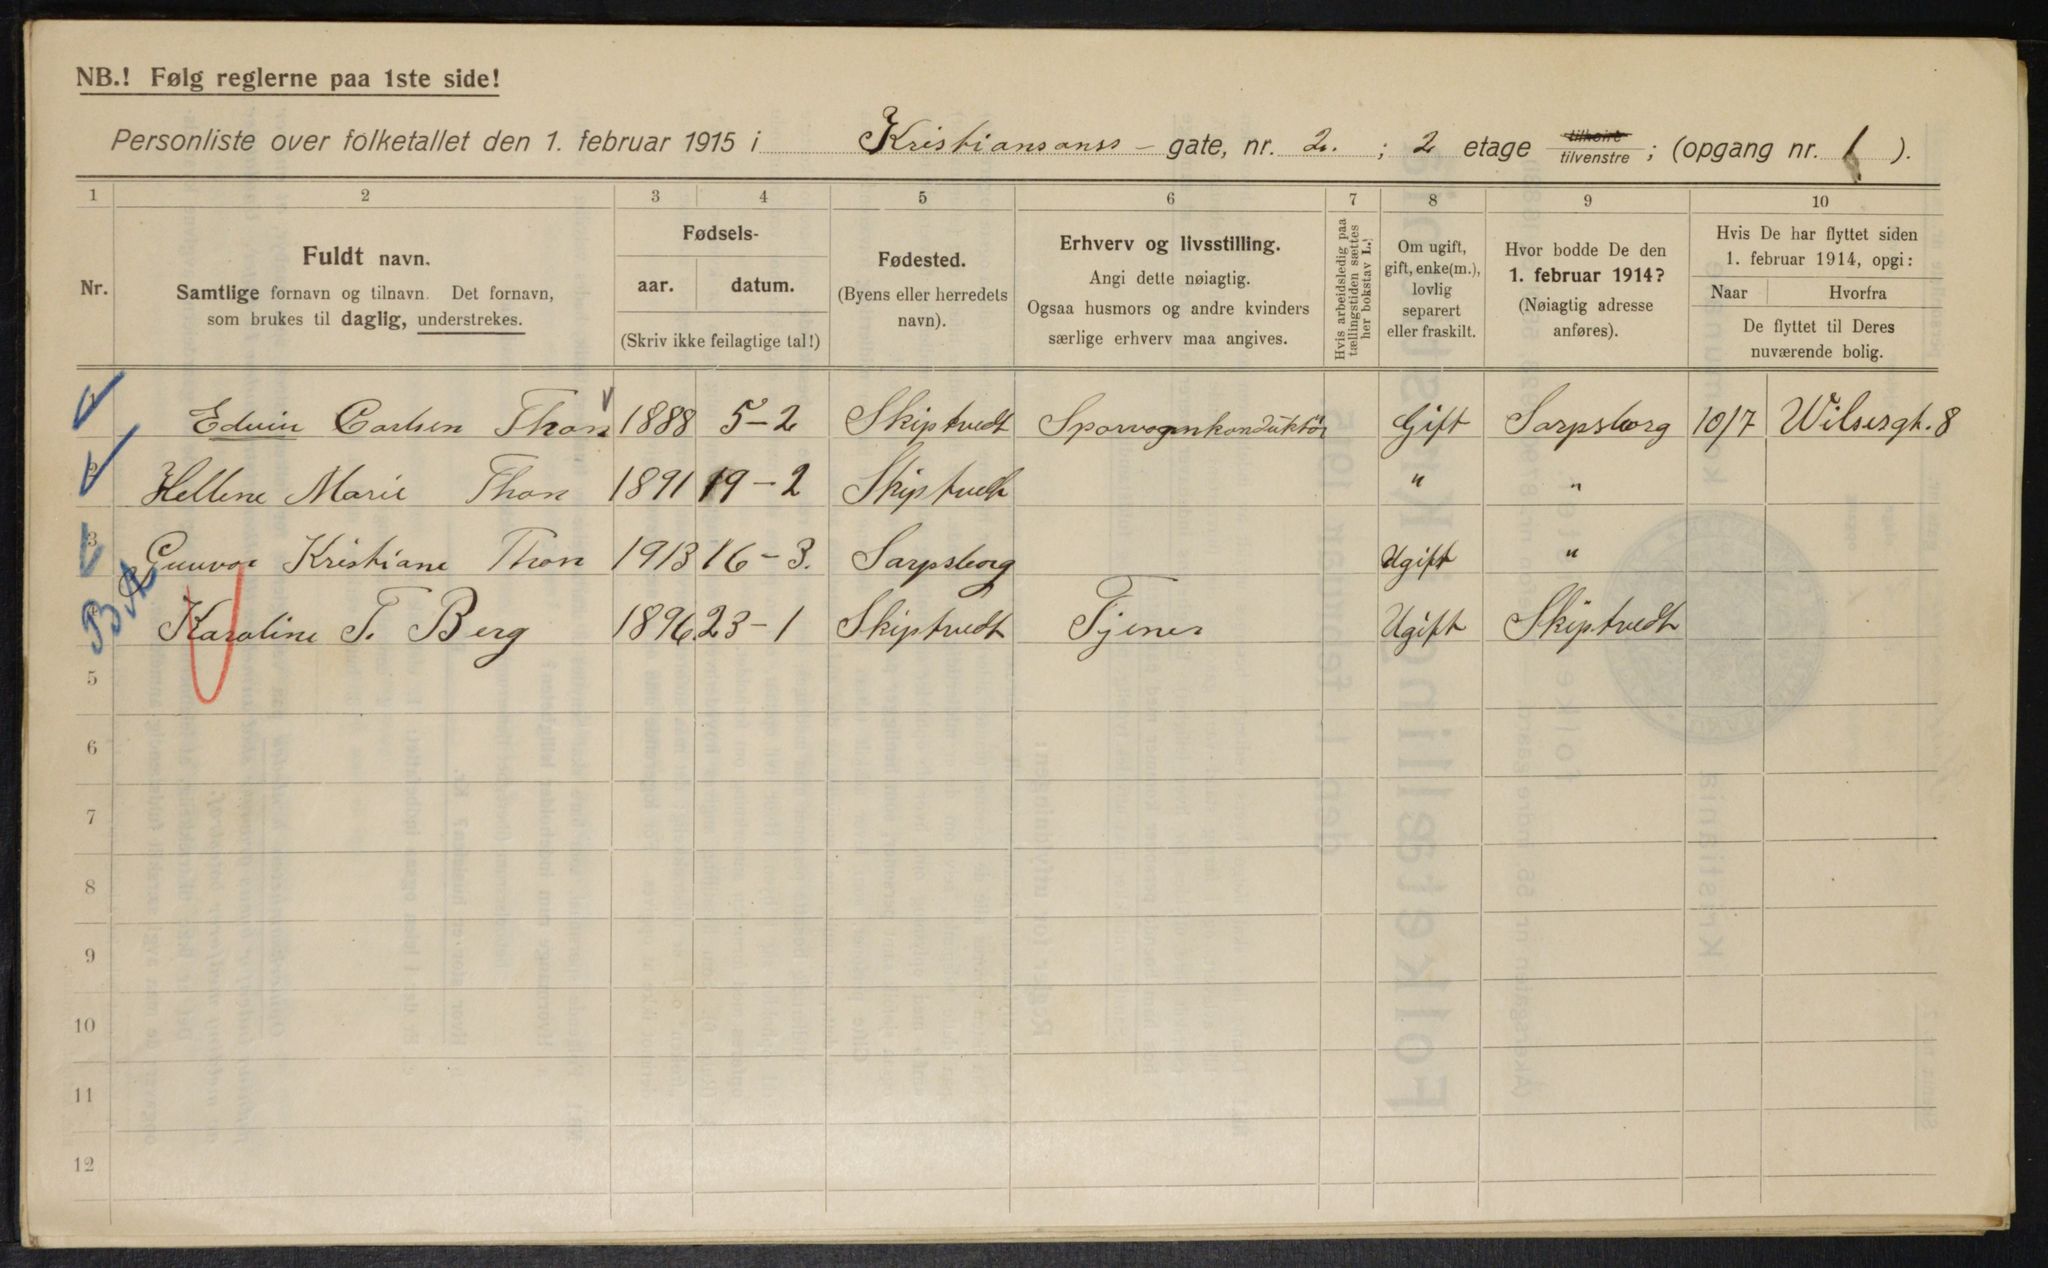 NB.! Følg reglerne paa 1ste side!
Personliste over folketallet den 1. februar 1915 i Kristiansanss - gate, nr. 2. ; 2 etage tilhoire tilvenstre ; (opgang nr. 1 ).
1 2 3 4 5 6 7 8 9 10
Nr.
Fuldt navn.
Samtlige fornavn og tilnavn. Det fornavn,
som brukes til daglig, understrekes.
Fødsels-
aar. datum.
(Skriv ikke feilagtige tal!)
Fødested.
(Byens eller herredets
navn).
Erhverv og livsstilling.
Angi dette nøiagtig.
Ogsaa husmors og andre kvinders
særlige erhverv maa angives.
Hvis arbeidsledig paa
tællingstiden sættes
her bokstav L.!
Om ugift,
gift, enke(m.),
lovlig
separert
eller fraskilt.
Hvor bodde De den
1. februar 1914?
(Nøiagtig adresse
anføres).
Hvis De har flyttet siden
1. februar 1914, opgi:
Naar Hvorfra
De flyttet til Deres
nuværende bolig.
1 Edvin Carlsen Thon 1888 5-2 Skiptvedt Sporvognkonduktör Gift Sarpsborg 10/7 Wilsesgt. 8
2 Hellene Marie Thon 1891 19-2 Skiptvedt " "
3 Gunvor Kristiane Thon 1913 16-3. Sarpsborg Ugift "
4 Karoline T. Berg 1896 23-1 Skiptvedt Tjener Ugift Skiptvedt
5
6
7
8
9
10
11
12